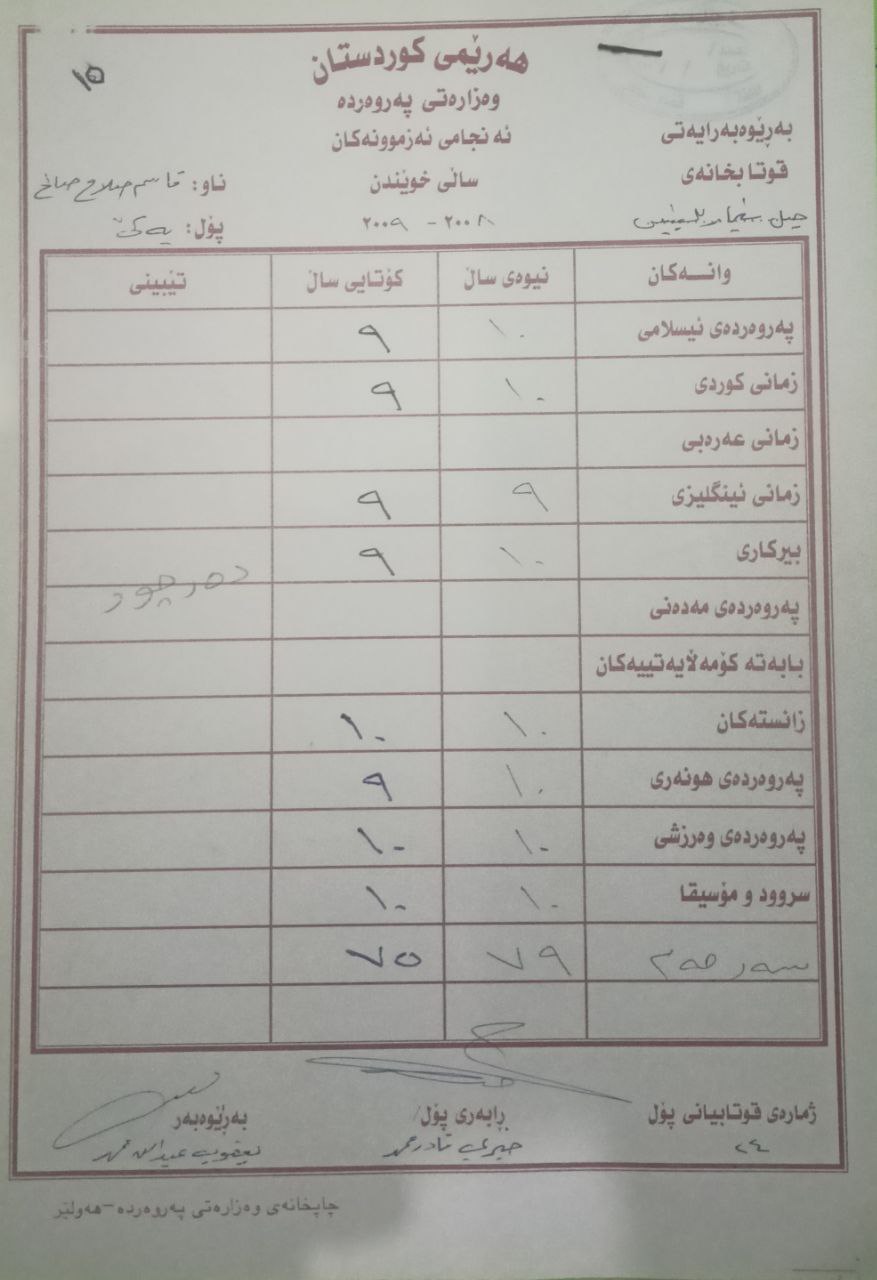 هەرێمی كوردستان
١٥
وەزارەتی پەروەردە
بەڕێوەبەرایەتی
ئەنجامی ئەزموونەكان
قوتابخانەی
ساڵی خوێندن
ناو: قاسم صلاح صالح
٢٠٠٨ - ٢٠٠٩
پۆل: یەكێ
وانەكان نیوەی ساڵ كۆتایی ساڵ تێبینی
پەروەردەی ئیسلامی ١٠ ٩
زمانی كوردی ١٠ ٩
زمانی عەرەبی
زمانی ئینگلیزی ٩ ٩
بیركاری ١٠ ٩
دەرچوو
پەروەردەی مەدەنی
بابەتە كۆمەڵایەتییەكان
زانستەكان ١٠ ١٠
پەروەردەی هونەری ١٠ ٩
پەروەردەی وەرزشی ١٠ ١٠
سروود و مۆسیقا ١٠ ١٠
سەرجەم ٧٩ ٧٥
ژمارەی قوتابیانی پۆل ڕابەری پۆل/ بەڕێوەبەر
٢٤ قادر محمد عبدالله محمد
چاپخانەی وەزارەتی پەروەردە-هەولێر